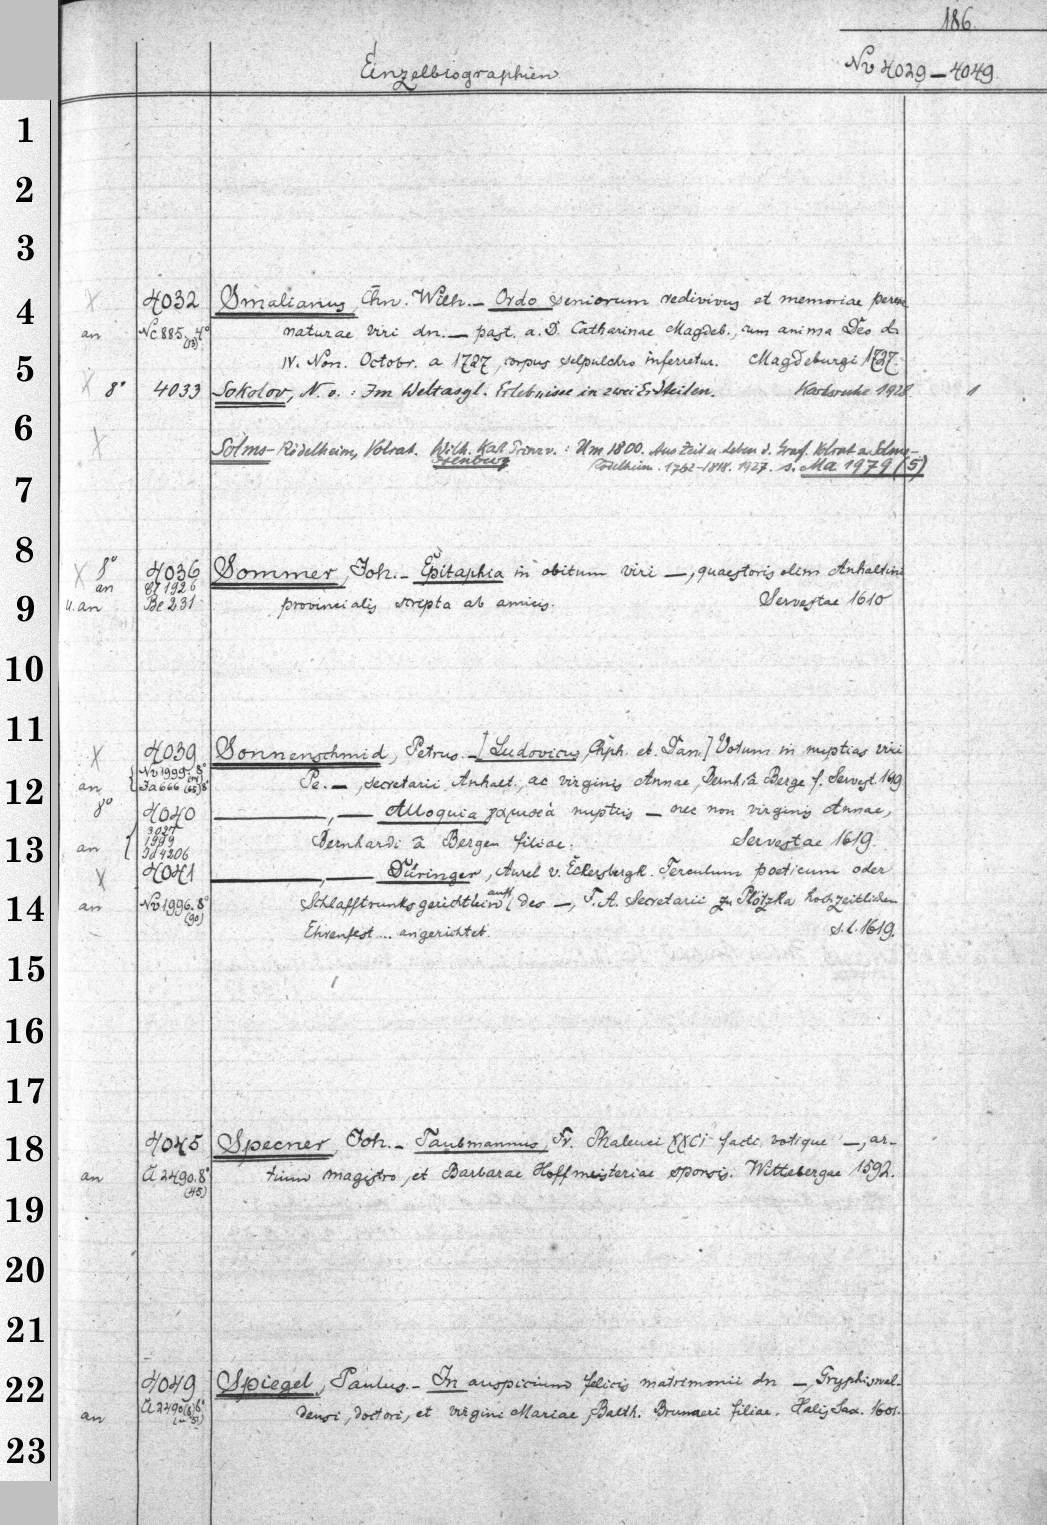 186
Einzelbiographien
Nv 4029 — 4049
1
2
3
4
5
6
7
8
9
10
11
12
13
14
15
16
17
18
19
20
21
22
23
4032 Smalianus, Chn. Wilh. — Ordo seniorum redivivus et memoriae peren
an Nc 885. 4° naturae viri dn. — past. a. D. Catharinae Magdeb., cum anima Deo d.
IV. Non. Octobr. a 1727, corpus sepulchro inferretur. Magdeburgi 1727.
8° 4033 Sokolov, N. v.: Im Weltasyl. Erlebnisse in zwei Erdteilen. Karlsruhe 1928 1
Solms-Rödelheim, Volrat. Wilh. Karl Prinz v. Isenburg: Um 1800. Aus Zeit u. Leben d. Graf. Volrat z. Solms-
Rödelheim. 1762-1818. 1927. s. Ma 1979 (5)
8° 4036 Sommer, Joh. — Epitaphia in obitum viri —, quaestoris olim Anhaltini
an 1926
u. an Be 231 provincialis scripta ab amicis. Servestae 1610
4039 Sonnenschmid, Petrus. — [Ludovicus, Chph. et Dan.] Votum in nuptias viri
an Nv 1995. 8° Pe. —, secretarii Anhalt., ac virginis Annae, Bernh. à Berge f. Servest. 1619
8° 4040 —, — Alloquia nuptiis — nec non virginis Annae,
an 1999 4206 Bernhardi à Bergen filiae. Servestae 1619.
4041 —, — Düringer, Aurel v. Eckersbergk. Ferculum poeticum oder
an Nv 1996. 8° (90) Schlafftrunksgerichtlein auff des —, F. A. Secretarii zu Plötzka hochzeitlichen
Ehrenfest ... angerichtet. s. l. 1619.
4045 Specner, Joh. — Taubmannus, Fr. Phaleuci XXCI facti votique —, ar-
an Ct 2490. 8° (45) tium magistro, et Barbarae Hoffmeisteriae sponsis. Wittebergae 1592.
4049 Spiegel, Paulus. — In auspicium felicis matrimonii dn —, Gryphiswal-
an densi, doctori, et virgini Mariae, Balth. Brunneri filiae. Halis Sax. 1601.